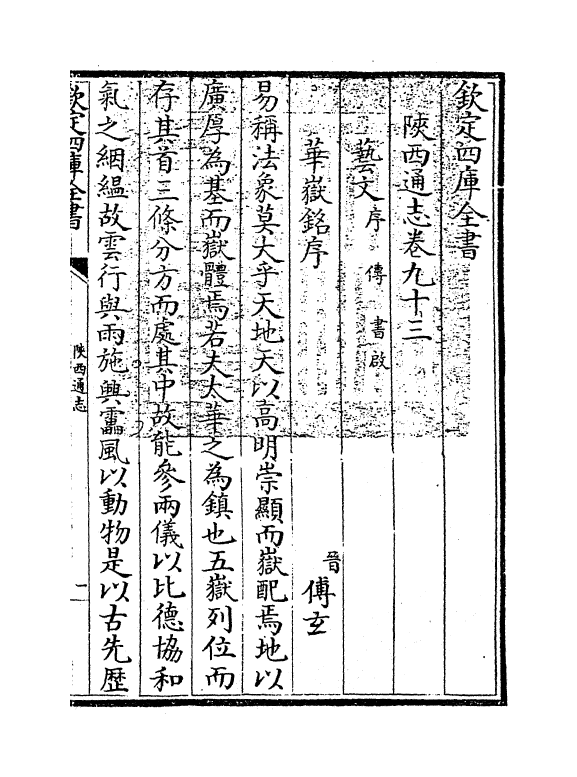 欽定四庫全書
陜西通志卷九十三
藝文序 傳 書啟
華嶽銘序
晉傅玄
易稱法象莫大乎天地天以高明崇顯而嶽配焉地以
廣厚為基而嶽體焉若夫太華之為鎮也五嶽列位而
存其首三條分方而處其中故能參兩儀以比德協和
氣之絪緼故雲行與雨施興靁風以動物是以古先歷
欽定四庫全書
陜西通志
一